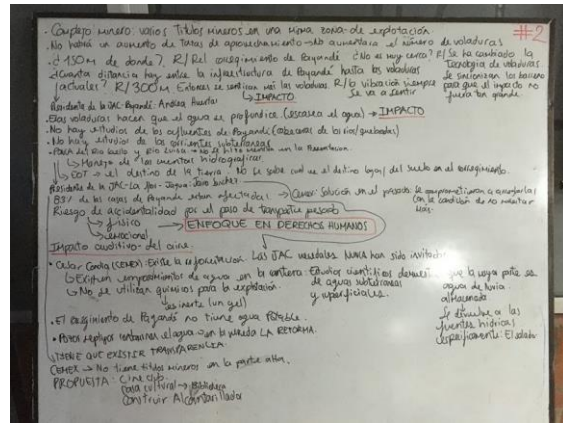 #2
· Complejo minero: varios títulos mineros en una misma zona de explotación.
· No habrá un aumento de tasas de aprovechamiento → No aumentaría el número de voladuras
· ¿150m de donde?, R/ Del corregimiento de Payandé ¿No es muy cerca? R/ Se ha cambiado la
Tecnología de voladuras
· ¿Cuanta distancia hay entre la infraestructura de Payandé hasta las voladuras
Se sincronizan los barrenos
actuales? R/ 300m Entonces se sentirán más las voladuras. R/ La vibración siempre
para que el impacto no
se va a sentir
fuera tan grande.
IMPACTO
Presidente de la JAC-Payandé: Andrea Huertas
· Esas voladuras hacen que el agua se profundice (escasea el agua) → IMPACTO
· No hay estudios de los afluentes de Payandé (cabeceras de los ríos/quebradas)
· No hay estudios de las corrientes subterráneas
en la Presentación.
↳ Manejo de las cuencas hidrográficas.
↳ EOT → el destino de la tierra. No se sabe cual es el destino legal del suelo en el corregimiento.
Presidente de la JAC-La
· 83% de las casas de Payandé están afectadas → Cemex: Solución en el pasado. Se comprometieron a
con la condición de no
más.
Riesgo de accidentalidad por el paso de transporte pesado
↳ físico
↳ emocional
→ ENFOQUE EN DERECHOS HUMANOS
Impacto auditivo del cine.
Las JAC veredales NUNCA han sido invitadas
· Cesar Conda (CEMEX): Existe la reforestación.
↳ Existen empozamientos de agua en la cantera: Estudios científicos demuestran que la mayor parte es
de aguas subterráneas
agua de lluvia
y superficiales.
almacenada
↳ No se utilizan químicos para la explotación.
↳ es inerte (un gel)
Se devuelve a las
fuentes hídricas
específicamente: El salado
· El corregimiento de Payandé no tiene agua Potable.
contaminan el agua → en la vereda LA REFORMA.
TIENE QUE EXISTIR TRANSPARENCIA.
CEMEX → No tiene títulos mineros en la parte alta.
PROPUESTA: Cine club
Casa cultural → Biblioteca
Construir Alcantarillado